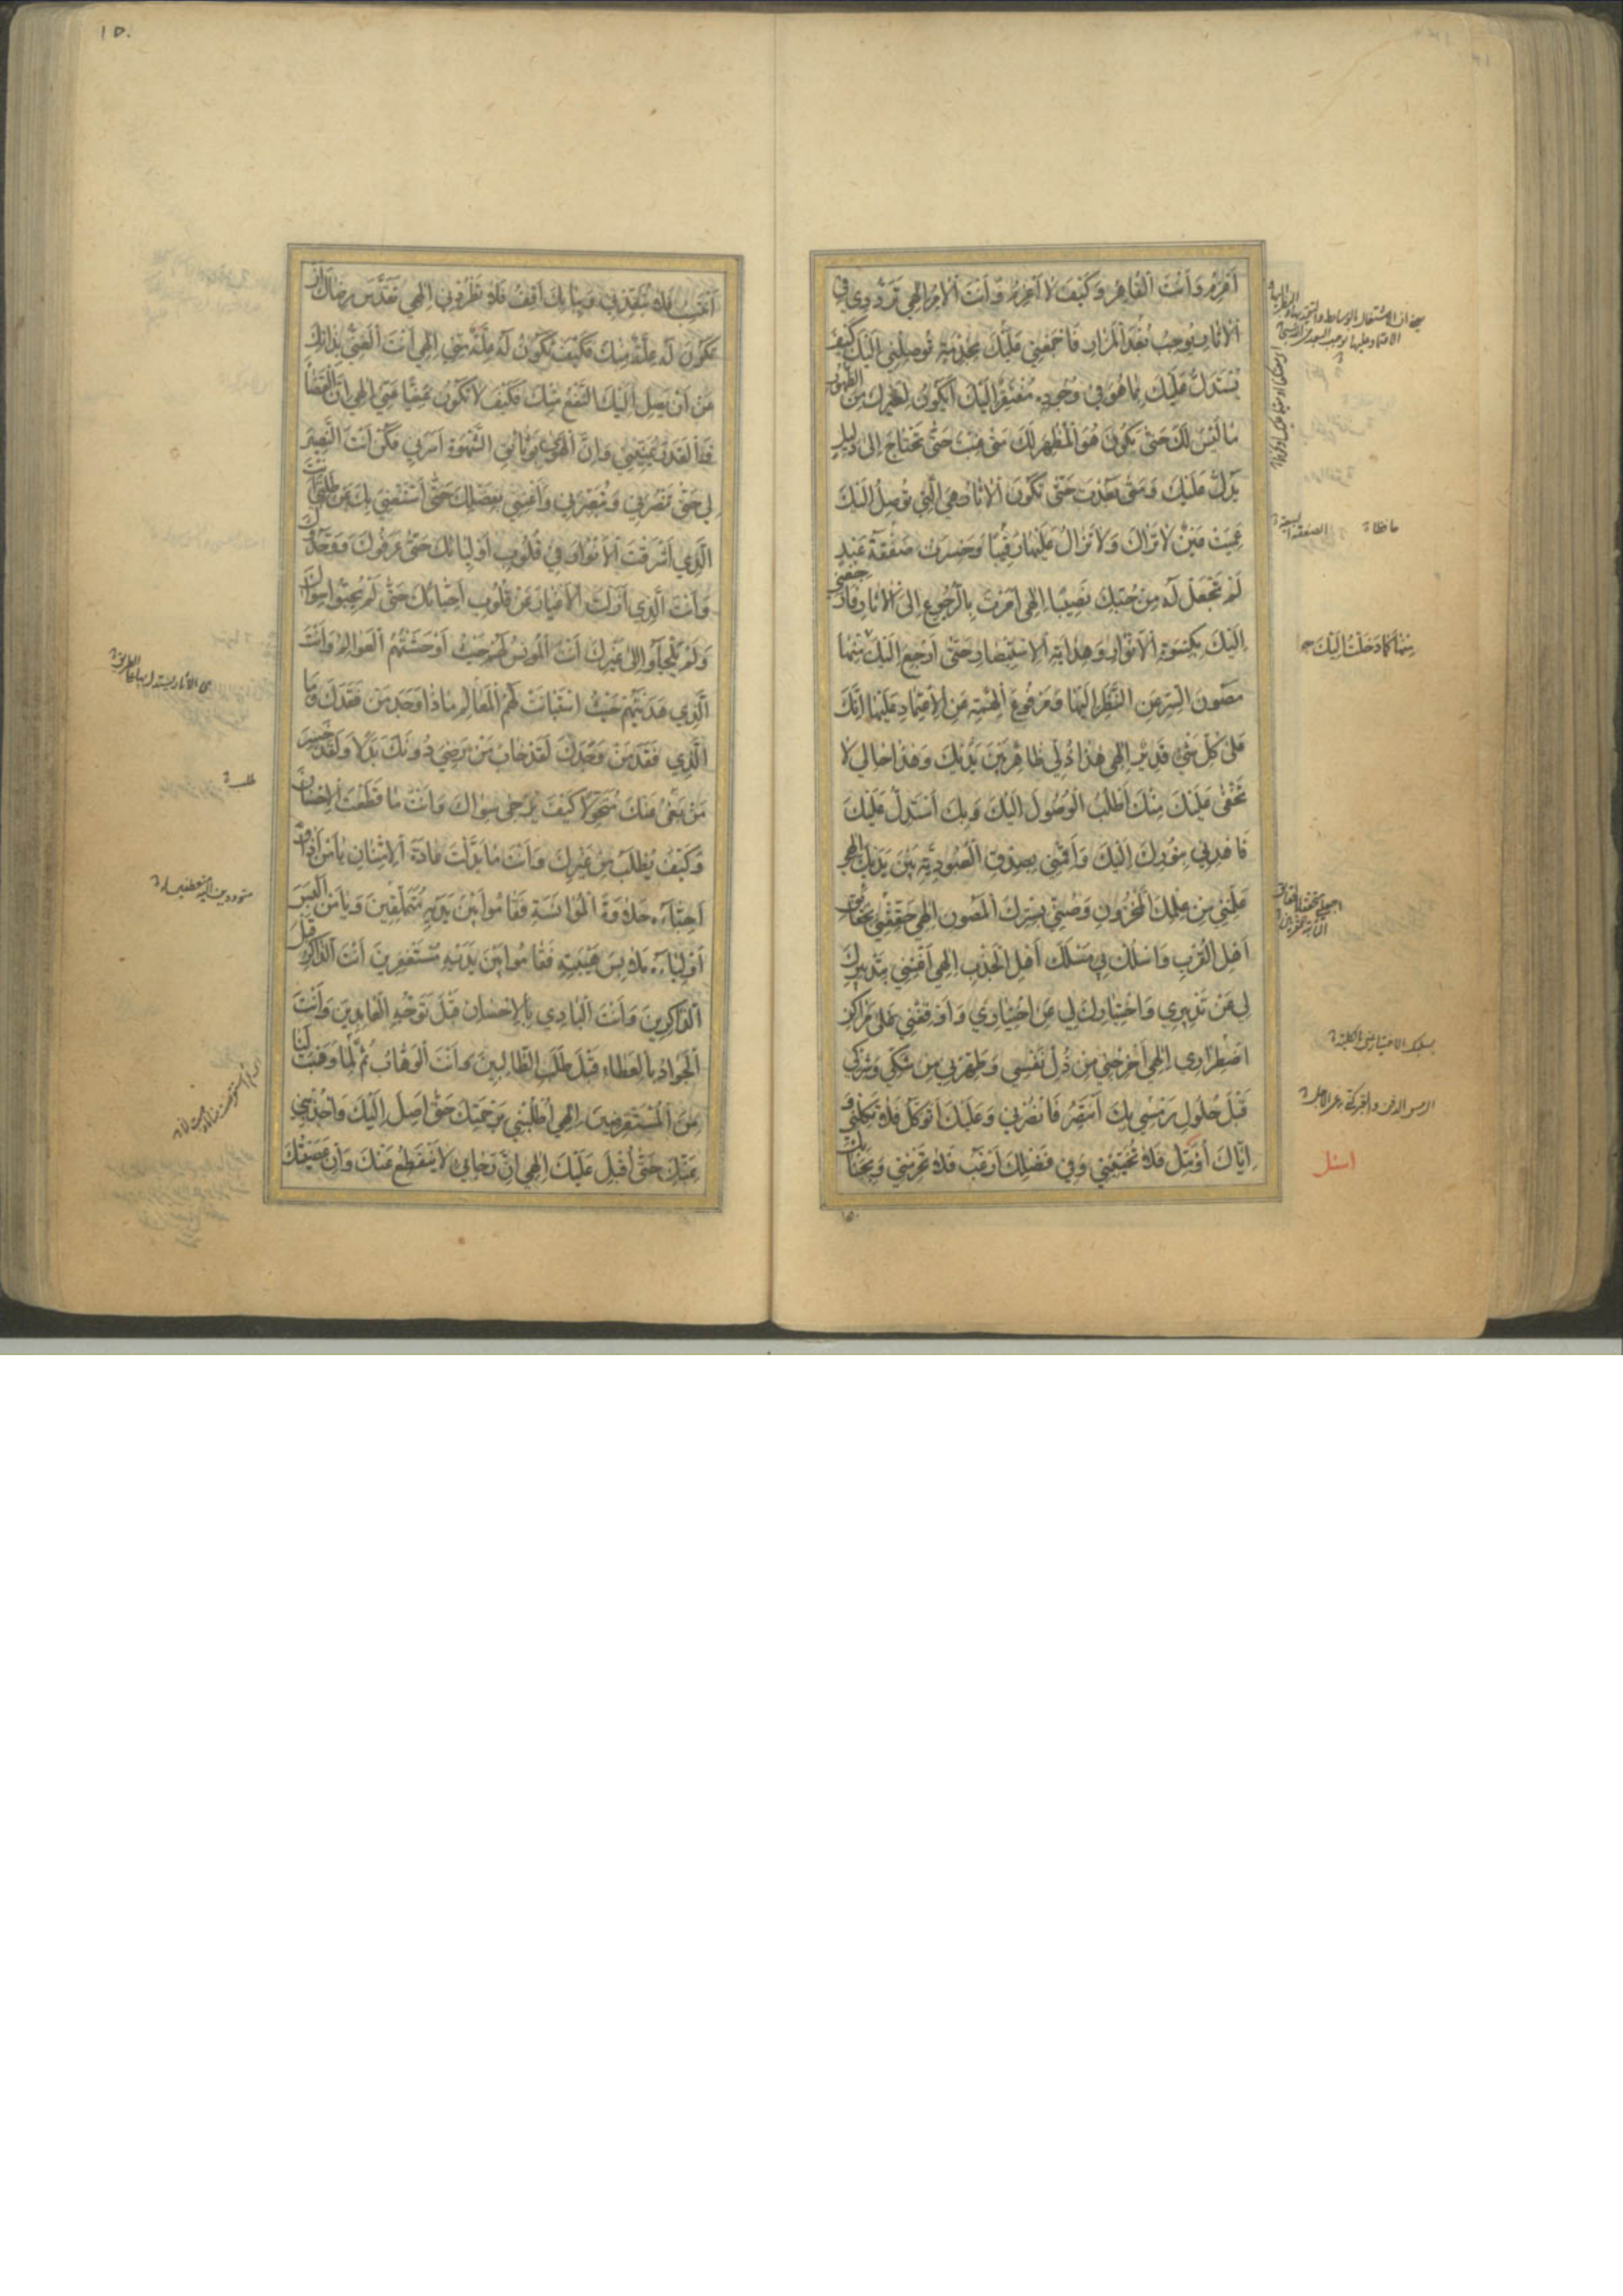 أَعْزِمُ وَأَنْتَ الْقَاهِرُ وَكَيْفَ لَا أَعْزِمُ وَأَنْتَ الْآمِرُ إِلٰهِي تَرَدُّدِي فِي
الْآثَارِ يُوجِبُ بُعْدَ الْمَزَارِ فَاجْمَعْنِي عَلَيْكَ بِخِدْمَةٍ تُوصِلُنِي إِلَيْكَ كَيْفَ
يُسْتَدَلُّ عَلَيْكَ بِمَا هُوَ فِي وُجُودِهِ مُفْتَقِرٌ إِلَيْكَ أَيَكُونُ لِغَيْرِكَ مِنَ الظُّهُورِ
مَا لَيْسَ لَكَ حَتَّى يَكُونَ هُوَ الْمُظْهِرَ لَكَ مَتَى غِبْتَ حَتَّى تَحْتَاجَ إِلَى دَلِيلٍ
يَدُلُّ عَلَيْكَ وَمَتَى بَعُدْتَ حَتَّى تَكُونَ الْآثَارُ هِيَ الَّتِي تُوصِلُ إِلَيْكَ
عَمِيَتْ عَيْنٌ لَا تَرَاكَ وَلَا تَزَالُ عَلَيْهَا رَقِيبًا وَخَسِرَتْ صَفْقَةُ عَبْدٍ
لَمْ تَجْعَلْ لَهُ مِنْ حُبِّكَ نَصِيبًا إِلٰهِي أَمَرْتَ بِالرُّجُوعِ إِلَى الْآثَارِ فَارْجِعْنِي
إِلَيْكَ بِكِسْوَةِ الْأَنْوَارِ وَهِدَايَةِ الْاسْتِبْصَارِ حَتَّى أَرْجِعَ إِلَيْكَ مِنْهَا
مَصُونَ السِّرِّ عَنِ النَّظَرِ إِلَيْهَا وَمَرْفُوعَ الْهِمَّةِ عَنِ الْاعْتِمَادِ عَلَيْهَا إِنَّكَ
عَلَى كُلِّ شَيْءٍ قَدِيرٌ إِلٰهِي هٰذَا ذُلِّي ظَاهِرٌ بَيْنَ يَدَيْكَ وَهٰذَا حَالِي لَا
يَخْفَى عَلَيْكَ مِنْكَ أَطْلُبُ الْوُصُولَ إِلَيْكَ وَبِكَ أَسْتَدِلُّ عَلَيْكَ
فَاهْدِنِي بِنُورِكَ إِلَيْكَ وَأَقِمْنِي بِصِدْقِ الْعُبُودِيَّةِ بَيْنَ يَدَيْكَ إِلٰهِي
عَلِّمْنِي مِنْ عِلْمِكَ الْمَخْزُونِ وَصُنِّي بِسِرِّكَ الْمَصُونِ إِلٰهِي حَقِّقْنِي بِحَقَائِقِ
أَهْلِ الْقُرْبِ وَاسْلُكْ بِي مَسْلَكَ أَهْلِ الْجَذْبِ إِلٰهِي أَغْنِنِي بِتَدْبِيرِكَ
لِي عَنْ تَدْبِيرِي وَاخْتِيَارِكَ لِي عَنِ اخْتِيَارِي وَأَوْقِفْنِي عَلَى مَرَاكِزِ
اضْطِرَارِي إِلٰهِي أَخْرِجْنِي مِنْ ذُلِّ نَفْسِي وَطَهِّرْنِي مِنْ شَكِّي وَشِرْكِي
قَبْلَ حُلُولِ رَمْسِي بِكَ أَنْتَصِرُ فَانْصُرْنِي وَعَلَيْكَ أَتَوَكَّلُ فَلَا تَكِلْنِي وَ
إِيَّاكَ أُؤَمِّلُ فَلَا تُخَيِّبْنِي وَفِي فَضْلِكَ أَرْغَبُ فَلَا تَحْرِمْنِي وَبِجَنَابِكَ
حافظا
الصفقة البيعة
منها كما دخلت اليك
اسئل
١٥٠
١٥٠
أَنْتَسِبُ فَلَا تُبْعِدْنِي وَبِبَابِكَ أَقِفُ فَلَا تَطْرُدْنِي إِلٰهِي تَقَدَّسَ رِضَاكَ أَنْ
تَكُونَ لَهُ عِلَّةٌ مِنْكَ فَكَيْفَ تَكُونُ لَهُ عِلَّةٌ مِنِّي إِلٰهِي أَنْتَ الْغَنِيُّ بِذَاتِكَ
عَنْ أَنْ يَصِلَ إِلَيْكَ النَّفْعُ مِنْكَ فَكَيْفَ لَا تَكُونُ غَنِيًّا عَنِّي إِلٰهِي إِنَّ الْقَضَاءَ
وَإِنَّ الْهَوَى بِوَثَائِقِ الشَّهْوَةِ أَسَرَنِي فَكُنْ أَنْتَ النَّصِيرَ
لِي حَتَّى تَنْصُرَنِي وَتُبَصِّرَنِي وَأَغْنِنِي بِفَضْلِكَ حَتَّى أَسْتَغْنِيَ بِكَ عَنْ طَلَبِي أَنْتَ
الَّذِي أَشْرَقْتَ الْأَنْوَارَ فِي قُلُوبِ أَوْلِيَائِكَ حَتَّى عَرَفُوكَ وَوَحَّدُوكَ
وَأَنْتَ الَّذِي أَزَلْتَ الْأَغْيَارَ عَنْ قُلُوبِ أَحِبَّائِكَ حَتَّى لَمْ يُحِبُّوا سِوَاكَ
وَلَمْ يَلْجَأُوا إِلَى غَيْرِكَ أَنْتَ الْمُونِسُ لَهُمْ حَيْثُ أَوْحَشَتْهُمُ الْعَوَالِمُ وَأَنْتَ
الَّذِي هَدَيْتَهُمْ حَيْثُ اسْتَبَانَتْ لَهُمُ الْمَعَالِمُ مَاذَا وَجَدَ مَنْ فَقَدَكَ وَمَا
الَّذِي فَقَدَ مَنْ وَجَدَكَ لَقَدْ خَابَ مَنْ رَضِيَ دُونَكَ بَدَلًا وَلَقَدْ خَسِرَ
مَنْ بَغَى عَنْكَ مُتَحَوِّلًا كَيْفَ يُرْجَى سِوَاكَ وَأَنْتَ مَا قَطَعْتَ الْإِحْسَانَ
وَكَيْفَ يُطْلَبُ مِنْ غَيْرِكَ وَأَنْتَ مَا بَدَّلْتَ عَادَةَ الْامْتِنَانِ يَا مَنْ أَذَاقَ
أَحِبَّاءَهُ حَلَاوَةَ الْمُؤَانَسَةِ فَقَامُوا بَيْنَ يَدَيْهِ مُتَمَلِّقِينَ وَيَا مَنْ أَلْبَسَ
أَوْلِيَاءَهُ مَلَابِسَ هَيْبَتِهِ فَقَامُوا بَيْنَ يَدَيْهِ مُسْتَغْفِرِينَ أَنْتَ الذَّاكِرُ قَبْلَ
الذَّاكِرِينَ وَأَنْتَ الْبَادِي بِالْإِحْسَانِ قَبْلَ تَوَجُّهِ الْعَابِدِينَ وَأَنْتَ
الْجَوَادُ بِالْعَطَاءِ قَبْلَ طَلَبِ الطَّالِبِينَ وَأَنْتَ الْوَهَّابُ ثُمَّ لِمَا وَهَبْتَ لَنَا
مِنَ الْمُسْتَقْرِضِينَ إِلٰهِي اطْلُبْنِي بِرَحْمَتِكَ حَتَّى أَصِلَ إِلَيْكَ وَاجْذِبْنِي
بِمَنِّكَ حَتَّى أُقْبِلَ عَلَيْكَ إِلٰهِي إِنَّ رَجَائِي لَا يَنْقَطِعُ عَنْكَ وَإِنْ عَصَيْتُكَ
طلب